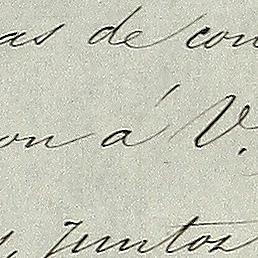 as de con
on á V.
s, juntos